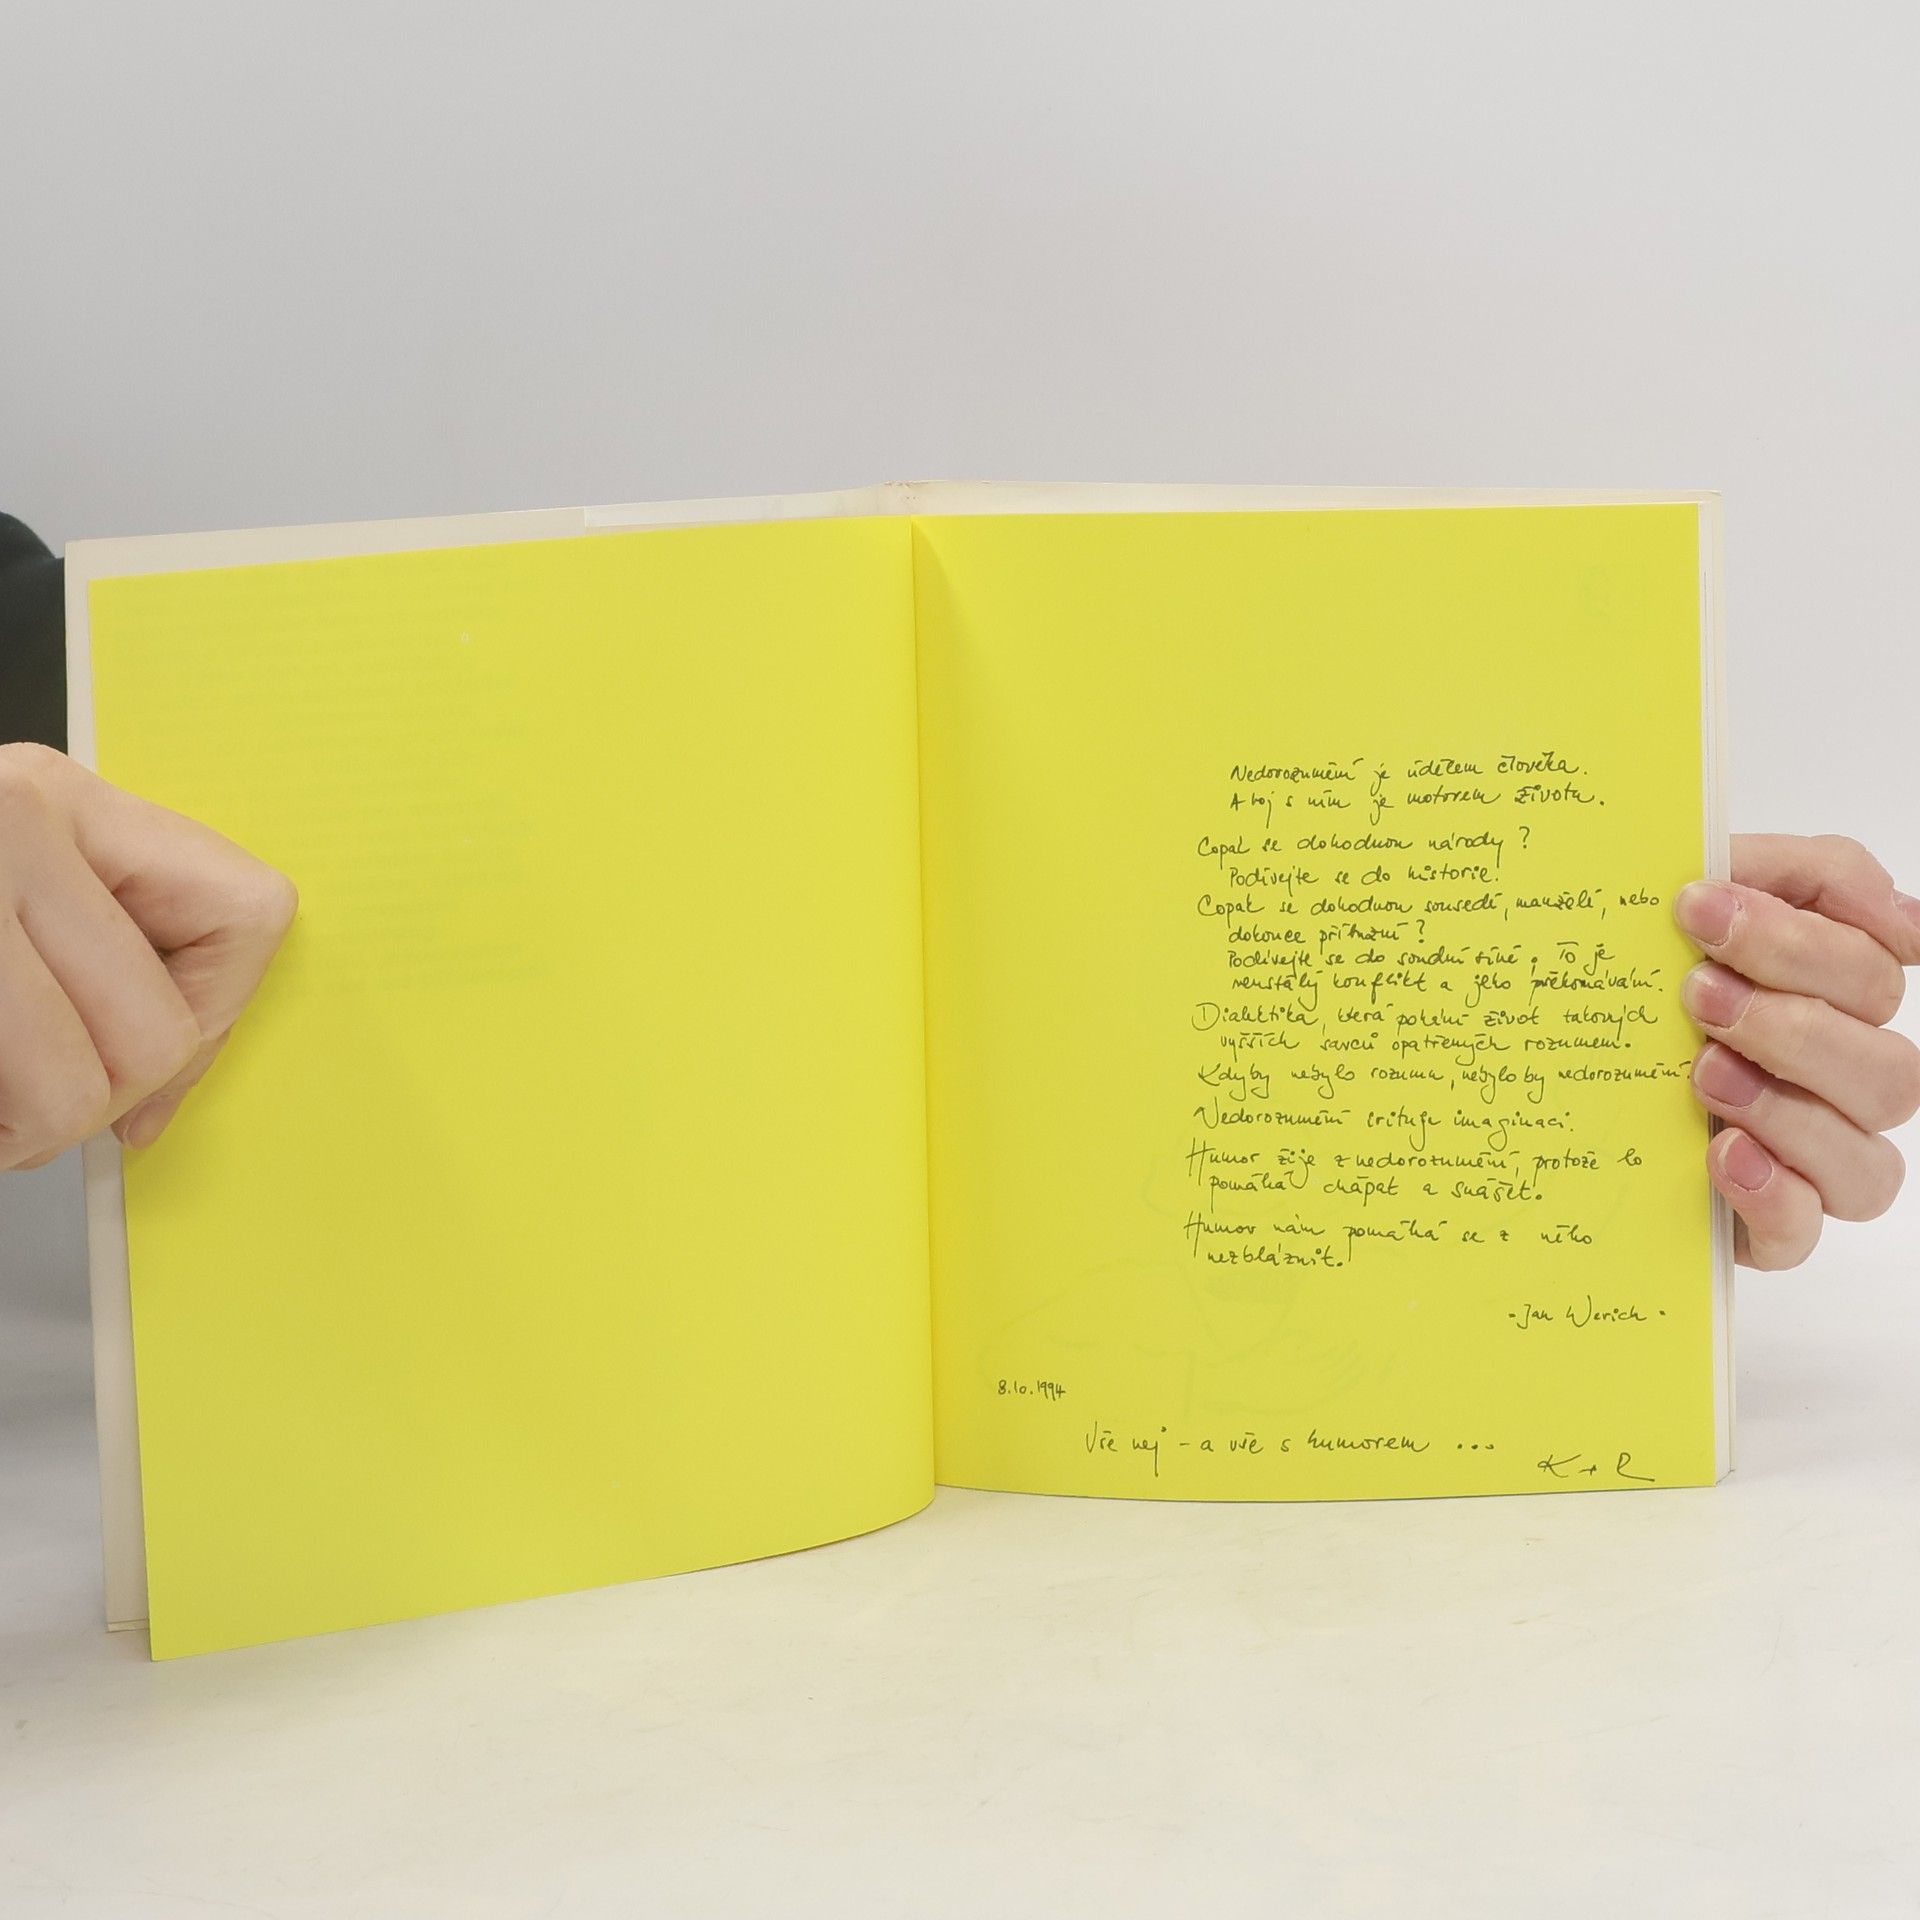 Nedorozumění je údělem člověka.
A boj s ním je motorem života.
Copak se dohodnou národy?
Podívejte se do historie!
Copak se dohodnou sousedi, manželé, nebo
dokonce příbuzní?
Podívejte se do soudní síně. To je
neustálý konflikt a jeho překonávání.
Dialektika, která pohání život takových
vyšších savců opatřených rozumem.
Kdyby nebylo rozumu, nebylo by nedorozumění.
Nedorozumění irituje imaginaci.
Humor žije z nedorozumění, protože ho
pomáhá chápat a snášet.
Humor nám pomáhá se z něho
nezbláznit.
- Jan Werich -
8.10.1994
Vše nej - a vše s humorem ...
K + R